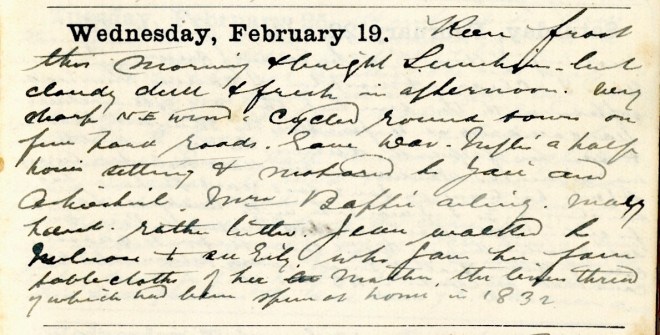 Wednesday, February 19. Keen frost
this morning & bright Sunshine - but
cloudy dull & fresh in afternoon. very
sharp NE wind. Cycled round town on
fine hard roads. Gave Wav. a half
hours sitting & motored to Jail and
Mrs Baffie ailing. Mary
rather better. Jean walked to
Melrose to see Eity who gave her four
tablecloths of her Mother, the linen thread
of which had been spun at home in 1832